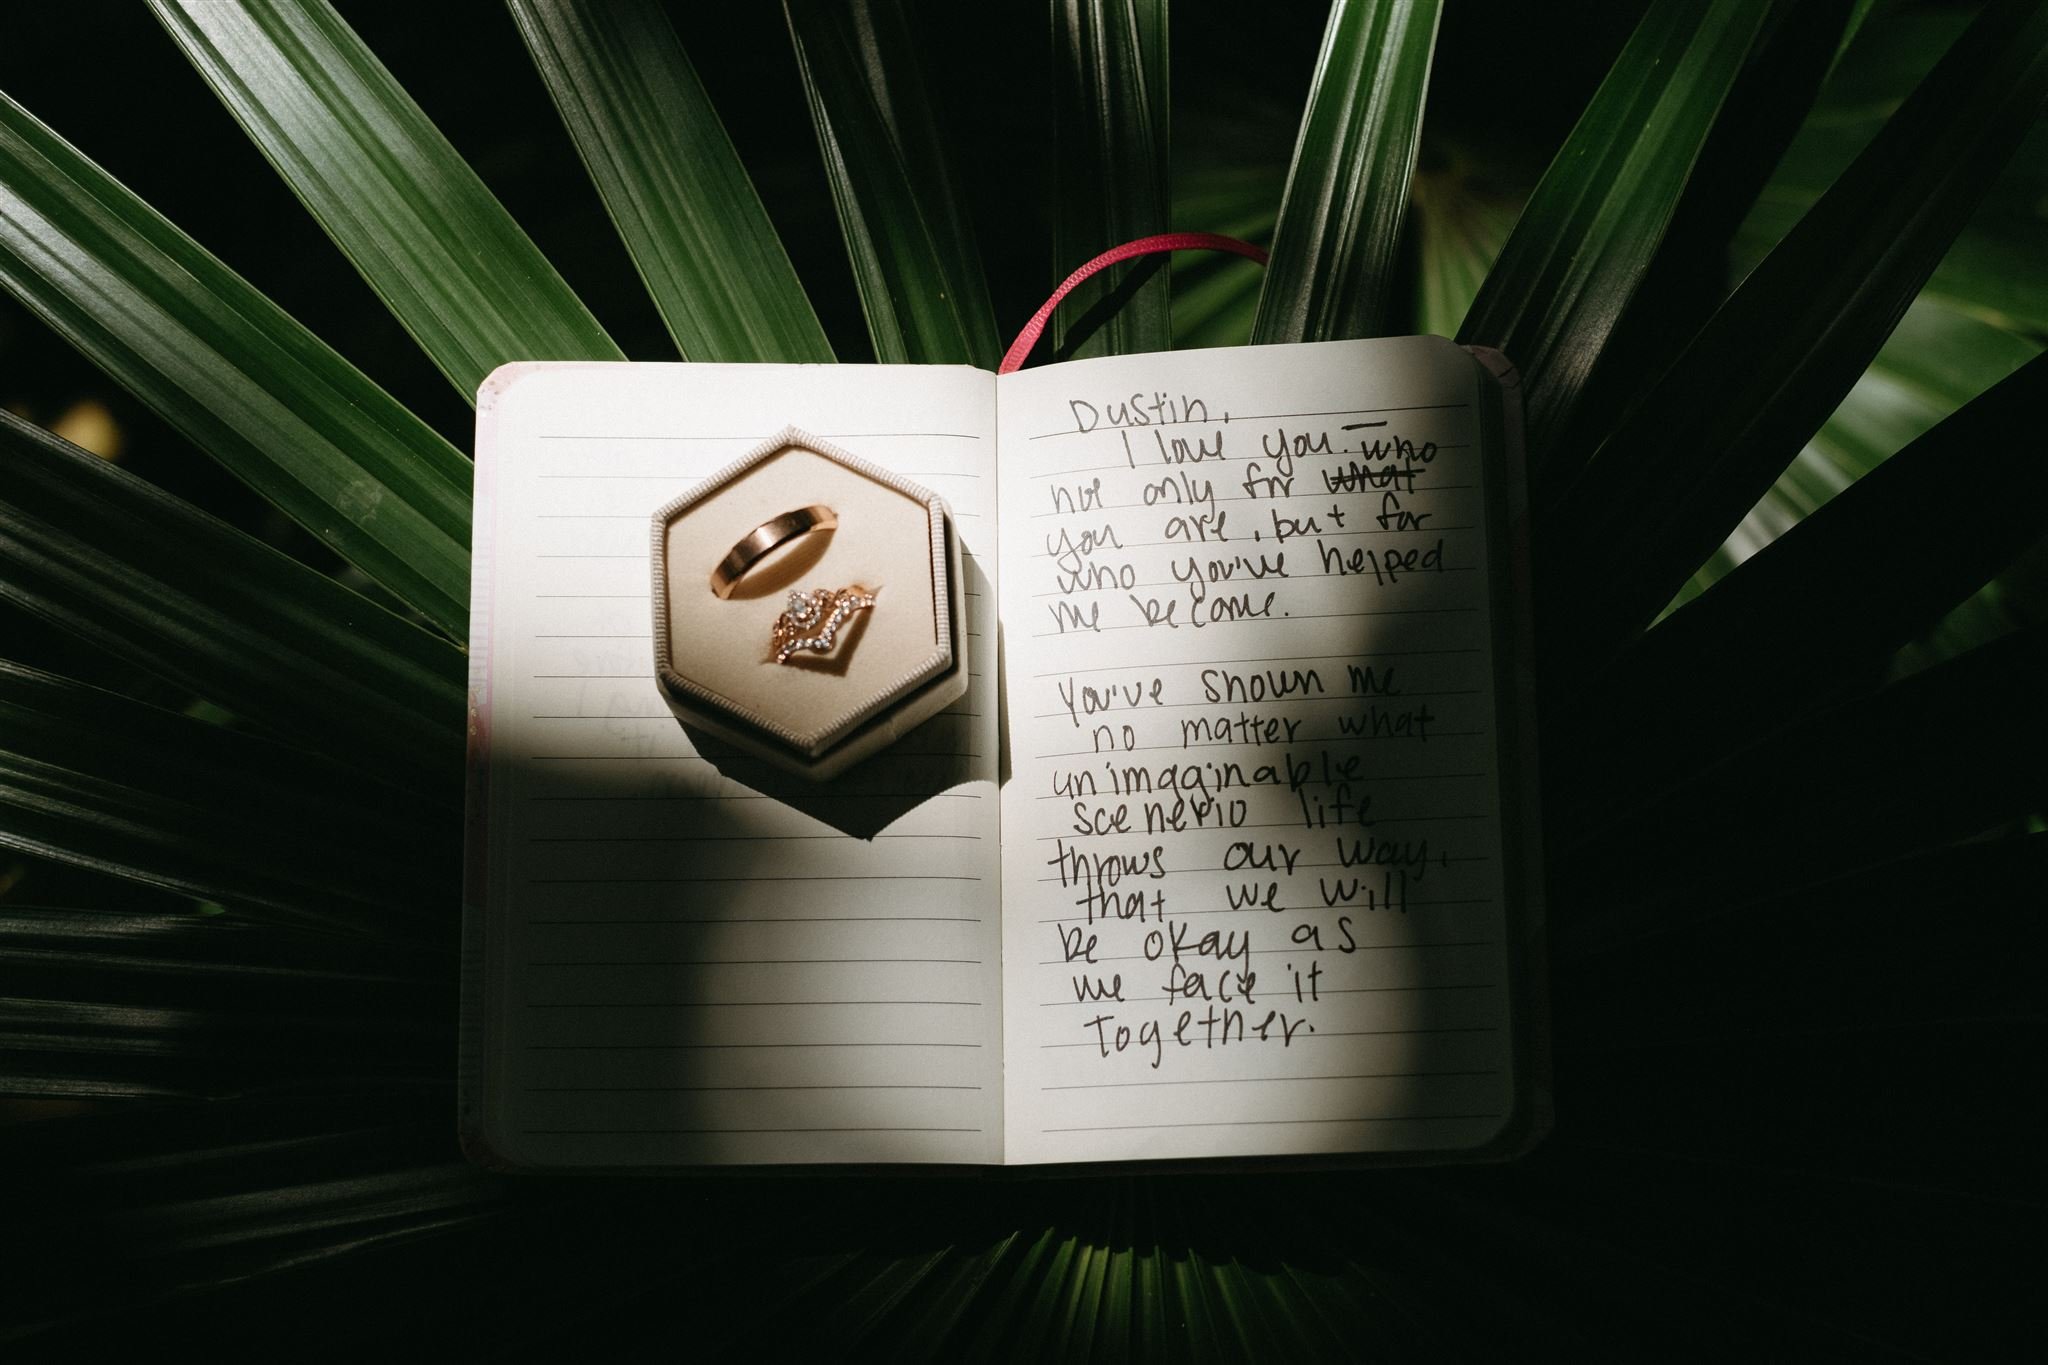 Dustin,
I love you. who
not only for what
you are, but for
who you've helped
me become.
You've shown me
no matter what
unimaginable
scenerio life
throws our way,
that we will
be okay as
we face it
together.